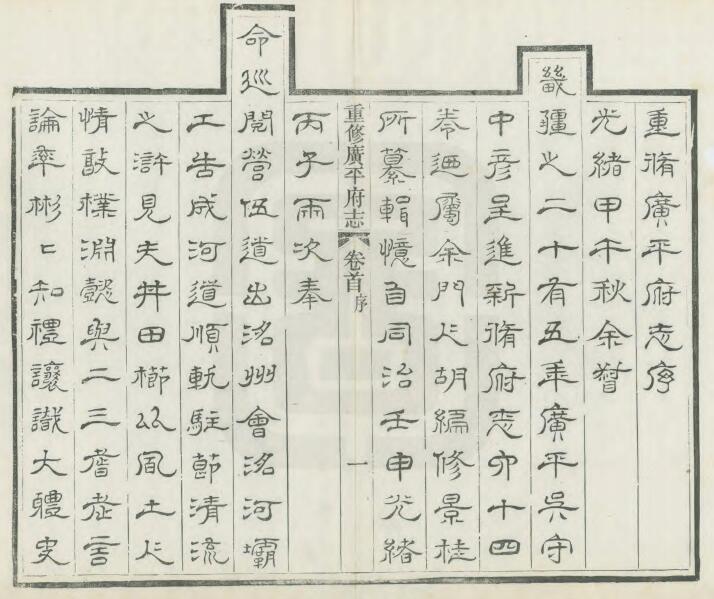 重脩廣平府志序
光緒甲午秋余督
畿疆之二十有五年廣平吳守
中彦呈進新脩府志卯十四
卷迺屬余門人胡編修景桂
所纂輯憶自同治壬申光緒
重修廣平府志 卷首 序 一
丙子兩次奉
命巡閱營伍道出洺州會洺河壩
工告成河道順軌駐節清流
之滸見夫井田櫛比風土人
情敦樸淵懿與二三耆老言
論率彬彬知禮讓識大體史